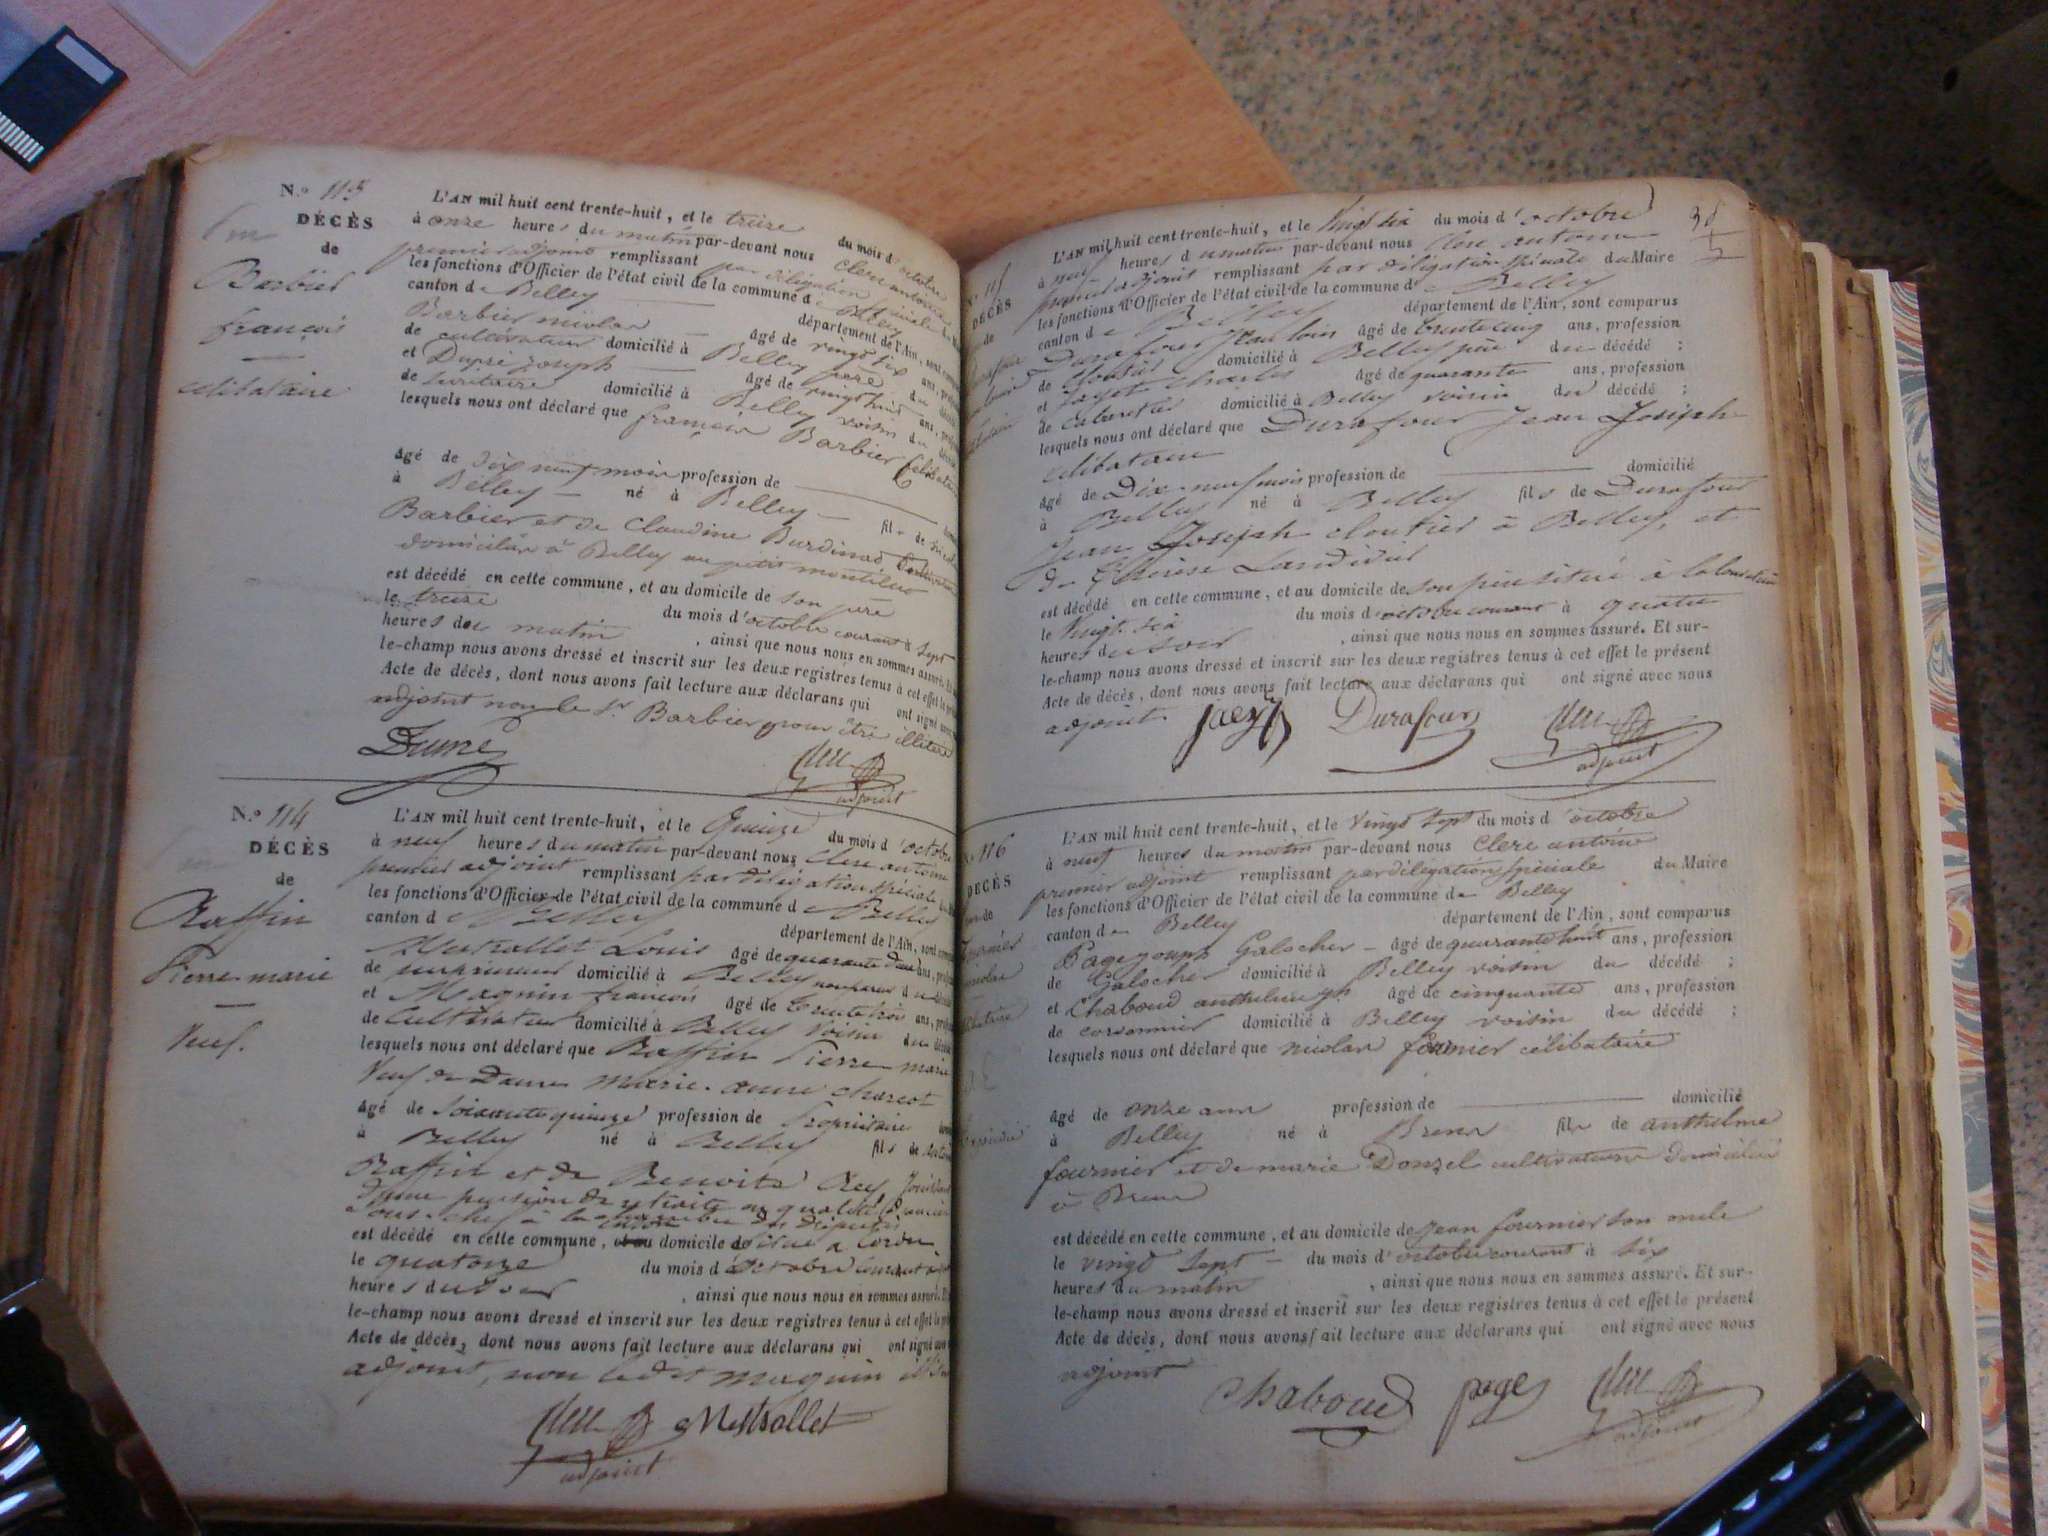 N.° 113
DÉCÈS
de
Barbier
françois
célibataire
L'AN mil huit cent trente-huit, et le treize du mois d'octobre
à onze heures du matin par-devant nous Clerc antoine
premier adjoint remplissant par délégation spéciale du
les fonctions d'Officier de l'état civil de la commune de Belley
canton de Belley département de l'Ain, sont
Barbier nicolas âgé de vingt six ans,
de cultivateur domicilié à Belley père du
et Dupré joseph âgé de vingt huit ans,
de domicilié à Belley voisin du
lesquels nous ont déclaré que françois Barbier célibataire
âgé de dix neuf mois profession de
à Belley né à Belley fils de
Barbier et de Claudine Burdinad
domiciliés à Belley au petit
est décédé en cette commune, et au domicile de son père
le treize du mois d'octobre courant à sept
heures du matin, ainsi que nous nous en sommes assuré. Et
le-champ nous avons dressé et inscrit sur les deux registres tenus à cet effet le
Acte de décès, dont nous avons fait lecture aux déclarans qui ont signé avec
adjoint non le Sr Barbier pour être illitéré
Clerc
adjoint
N.° 114
DÉCÈS
de
Raffin
Pierre-marie
Veuf.
L'AN mil huit cent trente-huit, et le Quinze du mois d'octobre
à neuf heures du matin par-devant nous Clerc antoine
premier adjoint remplissant par délégation spéciale du
les fonctions d'Officier de l'état civil de la commune de Belley
canton de Belley département de l'Ain, sont
Mestrallet Louis âgé de quarante deux ans,
de domicilié à Belley non parent du
et Magnin françois âgé de trente trois ans,
de Cultivateur domicilié à Belley Voisin du
lesquels nous ont déclaré que Raffin Pierre marie
Veuf de Dame Marie-anne charcot
âgé de soixante quinze profession de Propriétaire
à Belley né à Belley fils de
Raffin et de Benoite Rey
d'une pension de retraite en qualité
Sous-chef à la chambre des Députés
est décédé en cette commune, domicile situé à
le quatorze du mois d'octobre courant à
heures du soir, ainsi que nous nous en sommes assuré.
le-champ nous avons dressé et inscrit sur les deux registres tenus à cet effet le
Acte de décès, dont nous avons fait lecture aux déclarans qui ont signé avec
adjoint, non ledit magnin
Clerc Mestrallet
adjoint
38
N.° 115
DÉCÈS
de
L'AN mil huit cent trente-huit, et le Vingt six du mois d'octobre
à neuf heures du matin par-devant nous Clerc antoine
premier adjoint remplissant par délégation spéciale du Maire
les fonctions d'Officier de l'état civil de la commune de Belley
canton de Belley département de l'Ain, sont comparus
Durafour Jean âgé de trente cinq ans, profession
de Cloutier domicilié à Belley père du décédé;
et Jayet Charles âgé de quarante ans, profession
de cabaretier domicilié à Belley voisin du décédé;
lesquels nous ont déclaré que Durafour Jean Joseph
célibataire
âgé de Dix-neuf mois profession de domicilié
à Belley né à Belley fils de Durafour
Jean Joseph cloutier à Belley, et
de Thérèse Landivet
est décédé en cette commune, et au domicile de son père situé à
le Vingt-six du mois d'octobre courant à quatre
heures du soir, ainsi que nous nous en sommes assuré. Et sur-
le-champ nous avons dressé et inscrit sur les deux registres tenus à cet effet le présent
Acte de décès, dont nous avons fait lecture aux déclarans qui ont signé avec nous
adjoint. Durafour Clerc
adjoint
N.° 116
DÉCÈS
de
fournier
nicolas
L'AN mil huit cent trente-huit, et le vingt sept du mois d'octobre
à neuf heures du matin par-devant nous Clerc antoine
premier adjoint remplissant par délégation spéciale du Maire
les fonctions d'Officier de l'état civil de la commune de Belley
canton de Belley département de l'Ain, sont comparus
Page joseph Galocher âgé de quarante huit ans, profession
de Galocher domicilié à Belley voisin du décédé;
et Chaboud anthelme âgé de cinquante ans, profession
de domicilié à Belley voisin du décédé;
lesquels nous ont déclaré que nicolas fournier célibataire
âgé de onze ans profession de domicilié
à Belley né à Brens fils de anthelme
fournier et de marie Donzel cultivateurs domiciliés
à Brens
est décédé en cette commune, et au domicile de jean fournier son oncle
le vingt sept du mois d'octobre courant à six
heures du matin, ainsi que nous nous en sommes assuré. Et sur-
le-champ nous avons dressé et inscrit sur les deux registres tenus à cet effet le présent
Acte de décès, dont nous avons fait lecture aux déclarans qui ont signé avec nous
adjoint
Chaboud page Clerc
adjoint